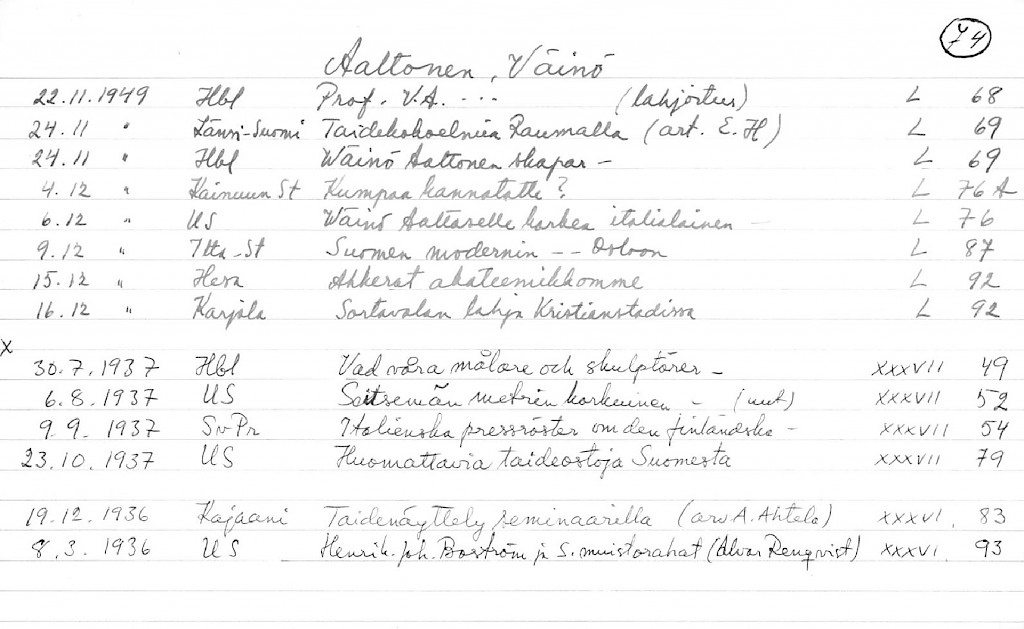 74
Aaltonen, Väinö
22.11.1949 Hbl Prof. V.A. ... (lahjoitus) L 68
24.11 " Länsi-Suomi Taidekokoelmia Raumalla (art. E.H) L 69
24.11 " Hbl Wäinö Aaltonen skapar – L 69
4.12 " Kainuun St Kumpaa kannatatte? L 76 A
6.12 " US Wäinö Aaltoselle korkea italialainen – L 76
9.12 " Itä-St Suomen modernin -- Osloon L 87
15.12 " Ahkerat akateemikkomme L 92
16.12 " Karjala Sortavalan lahja Kristianstadissa L 92
x
30.7.1937 Hbl Vad våra målare och skulptörer – XXXVII 49
6.8.1937 US Seitsemän metrin korkuinen – (uut) XXXVII 52
9.9.1937 Sv-Pr Italienska pressröster om den finländska – XXXVII 54
23.10.1937 US Huomattavia taideostoja Suomesta XXXVII 79
19.12.1936 Kajaani Taidenäyttely seminaarilla (arv A. Ahtela) XXXVI. 83
8.3.1936 US Henrik Joh. Boström ja S. muistorahat (Alvar Renqvist) XXXVI 93